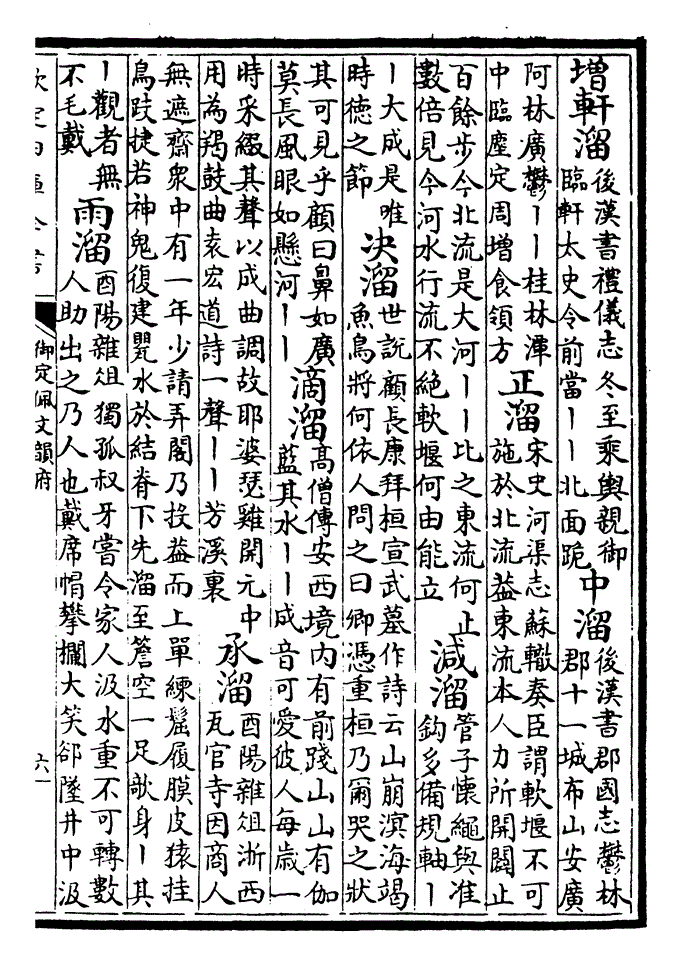 增軒溜
後漢書禮儀志冬至乘輿親御
臨軒太史令前當丨丨北面跪
中溜
後漢書郡國志鬱林
郡十一城布山安廣
阿林廣鬱丨丨桂林潭
中臨塵定周增食領方
正溜
宋史河渠志蘇轍奏臣謂軟堰不可
施於北流葢東流本人力所開闢止
百餘步今北流是大河丨丨比之東流何止
數倍見今河水行流不絶軟堰何由能立
減溜
管子懷繩與准
鈎多備規軸丨
丨大成是唯
時徳之節
決溜
世說顧長康拜桓宣武墓作詩云山崩溟海竭
魚鳥將何依人問之曰卿憑重桓乃爾哭之狀
其可見乎顧曰鼻如廣
莫長風眼如懸河丨丨
滴溜
高僧傳安西境內有前踐山山有伽
藍其水丨丨成音可愛彼人每歲一
時采綴其聲以成曲調故耶婆瑟雞開元中
用為羯鼓曲袁宏道詩一聲丨丨芳溪裏
承溜
酉陽雜俎浙西
瓦官寺因商人
無遮齋衆中有一年少請弄閣乃投葢而上單練䯱履膜皮猿挂
鳥跂捷若神鬼復建甖水於結脊下先溜至簷空一足欹身丨其
丨觀者無
不毛戴
雨溜
酉陽雜俎獨孤叔牙嘗令家人汲水重不可轉數
人助出之乃人也戴席帽攀欄大笑卻墜井中汲
欽定四庫全書
御定佩文韻府
六一